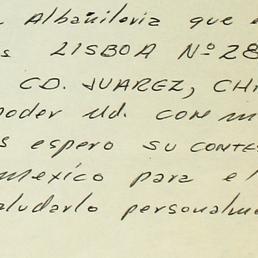 Albañileria que e
s LISBOA Nº 28
CD. JUAREZ, CHI
poder Ud. con m
s espero su CONTES
mexico para el
aludarlo personalme